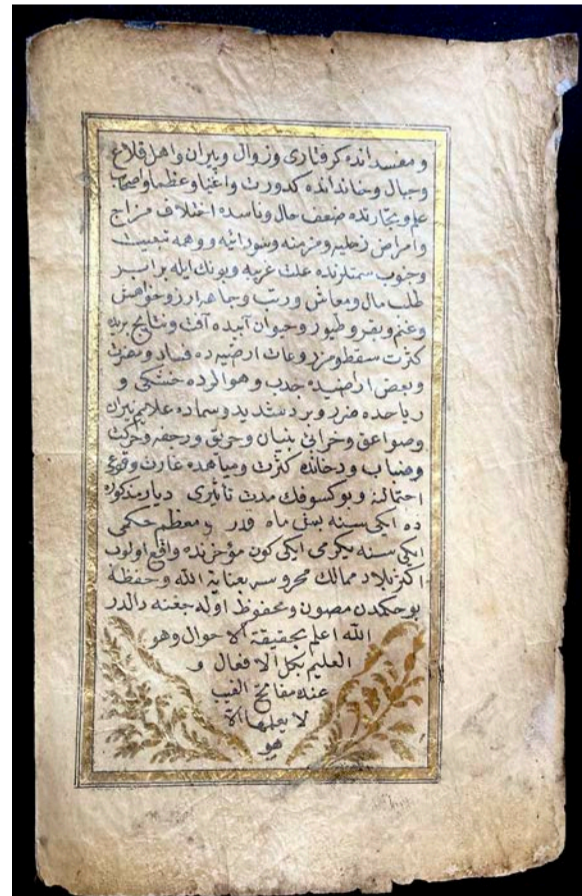 و مفسدانده کرفتاری و زوال و پیران و اهل قلاع
وجبال و خاندانده کدورت و اغنیا و عظما و اصحاب
علم و تجارنده ضعف حال و ناسده اختلاف مزاج
و امراض زحلیه و مزمنه و سوداییه و وهمه تبعیت
و جنوب سمتلرنده علت غریبه و بونك ایله برابر
طلب مال و معاش و رتب و جماهده ارز و خواهش
و غنم و بقر و طیور و حیوان آبیده آفت و نتایج بریده
کثرت سقط و مزروعات ارضیه ده فساد و مضرت
و بعض اراضیده جدب و هوالرده خشکی و
ریاحده ضرر و برد شدید و سماده علایم نیران
و صواعق و خرابی بنیان و حریق و رجفه و حرکت
و ضباب و دخانده کثرت و میاهده غارت وقوعی
احتمالنه و بو کسوفك مدت تاثیری دیار مذکوره
ده ایکی سنه بش ماه قدر و معظم حکمی
ایکی سنه یکرمی ایکی کون مؤخرنده واقع اولوب
اکثر بلاد ممالك محروسه بعنایة الله و حفظه
بو حکمدن مصون و محفوظ اوله جغنه دالدر
الله اعلم بحقیقة الاحوال وهو
العلیم بکل الافعال و
عنده مفاتح الغیب
لا یعلمها الا
هو